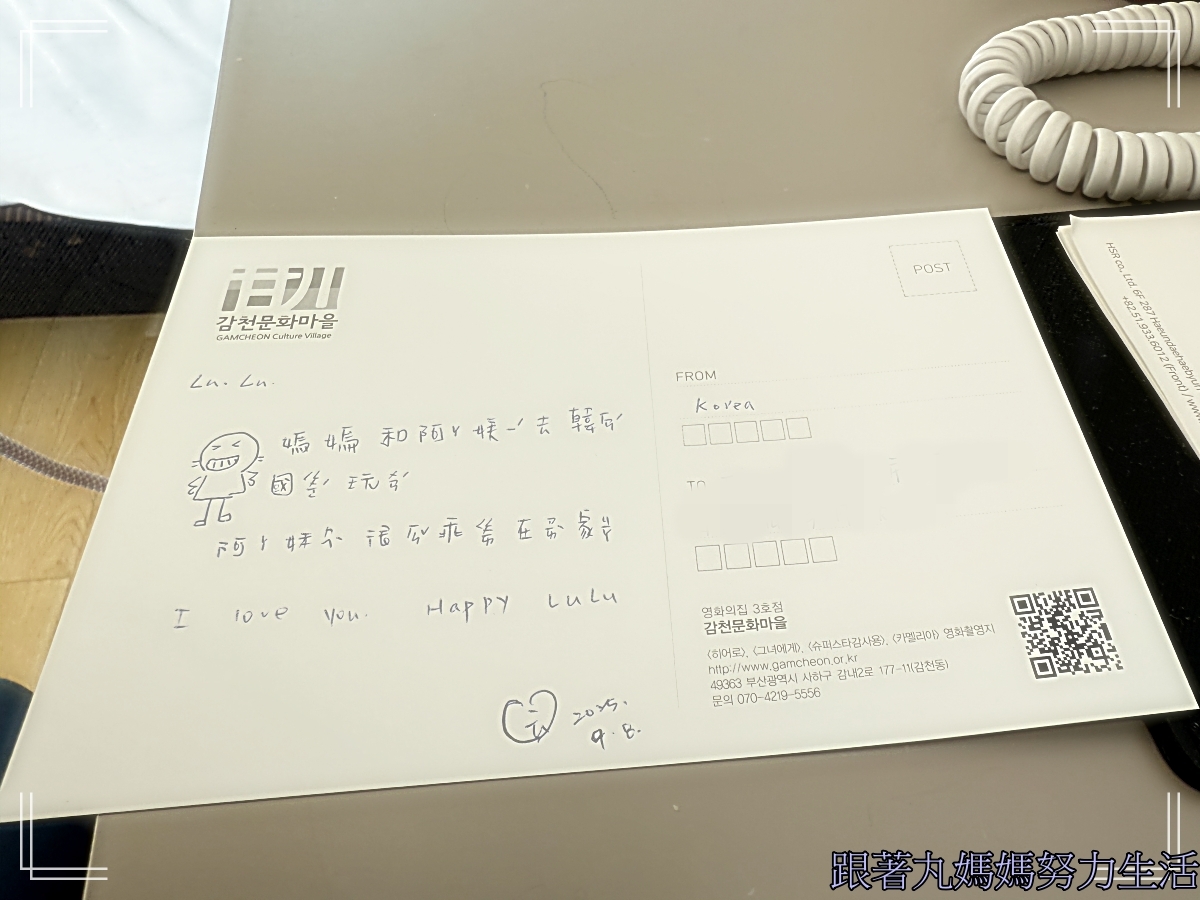 감천문화마을
GAMCHEON Culture Village
Lu. Lu.
媽 媽 和 阿 妹 去 韓
國 玩
阿 妹 乖 在 家
I love you. Happy LuLu
2025.
9. 8.
POST
FROM
Korea
TO
영화의집 3호점
감천문화마을
〈히어로〉, 〈그녀에게〉, 〈슈퍼스타감사용〉, 〈카멜리아〉 영화촬영지
http://www.gamcheon.or.kr
49363 부산광역시 사하구 감내2로 177-11(감천동)
문의 070-4219-5556
HSR co., Ltd. 6F 287 Haeundaehaebyun
+82.51.933.6012 (Front) / www
跟著九媽媽努力生活